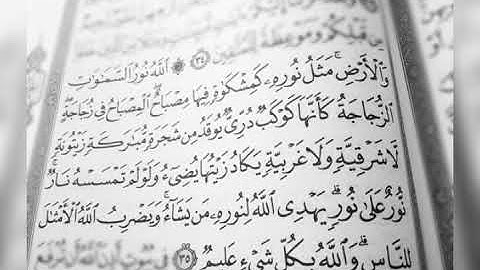 مِن قَبْلِكُمْ وَمَوْعِظَةً لِّلْمُتَّقِينَ ٣٤ ۞ ٱللَّهُ نُورُ ٱلسَّمَٰوَٰتِ
وَٱلْأَرْضِ ۚ مَثَلُ نُورِهِۦ كَمِشْكَوٰةٍ فِيهَا مِصْبَاحٌ ۖ ٱلْمِصْبَاحُ فِى زُجَاجَةٍ ۖ
ٱلزُّجَاجَةُ كَأَنَّهَا كَوْكَبٌ دُرِّىٌّ يُوقَدُ مِن شَجَرَةٍ مُّبَٰرَكَةٍ زَيْتُونَةٍ
لَّا شَرْقِيَّةٍ وَلَا غَرْبِيَّةٍ يَكَادُ زَيْتُهَا يُضِىٓءُ وَلَوْ لَمْ تَمْسَسْهُ نَارٌ ۚ
نُّورٌ عَلَىٰ نُورٍ ۗ يَهْدِى ٱللَّهُ لِنُورِهِۦ مَن يَشَآءُ ۚ وَيَضْرِبُ ٱللَّهُ ٱلْأَمْثَٰلَ
لِلنَّاسِ ۗ وَٱللَّهُ بِكُلِّ شَىْءٍ عَلِيمٌ ٣٥ فِى بُيُوتٍ أَذِنَ ٱللَّهُ أَن تُرْفَعَ